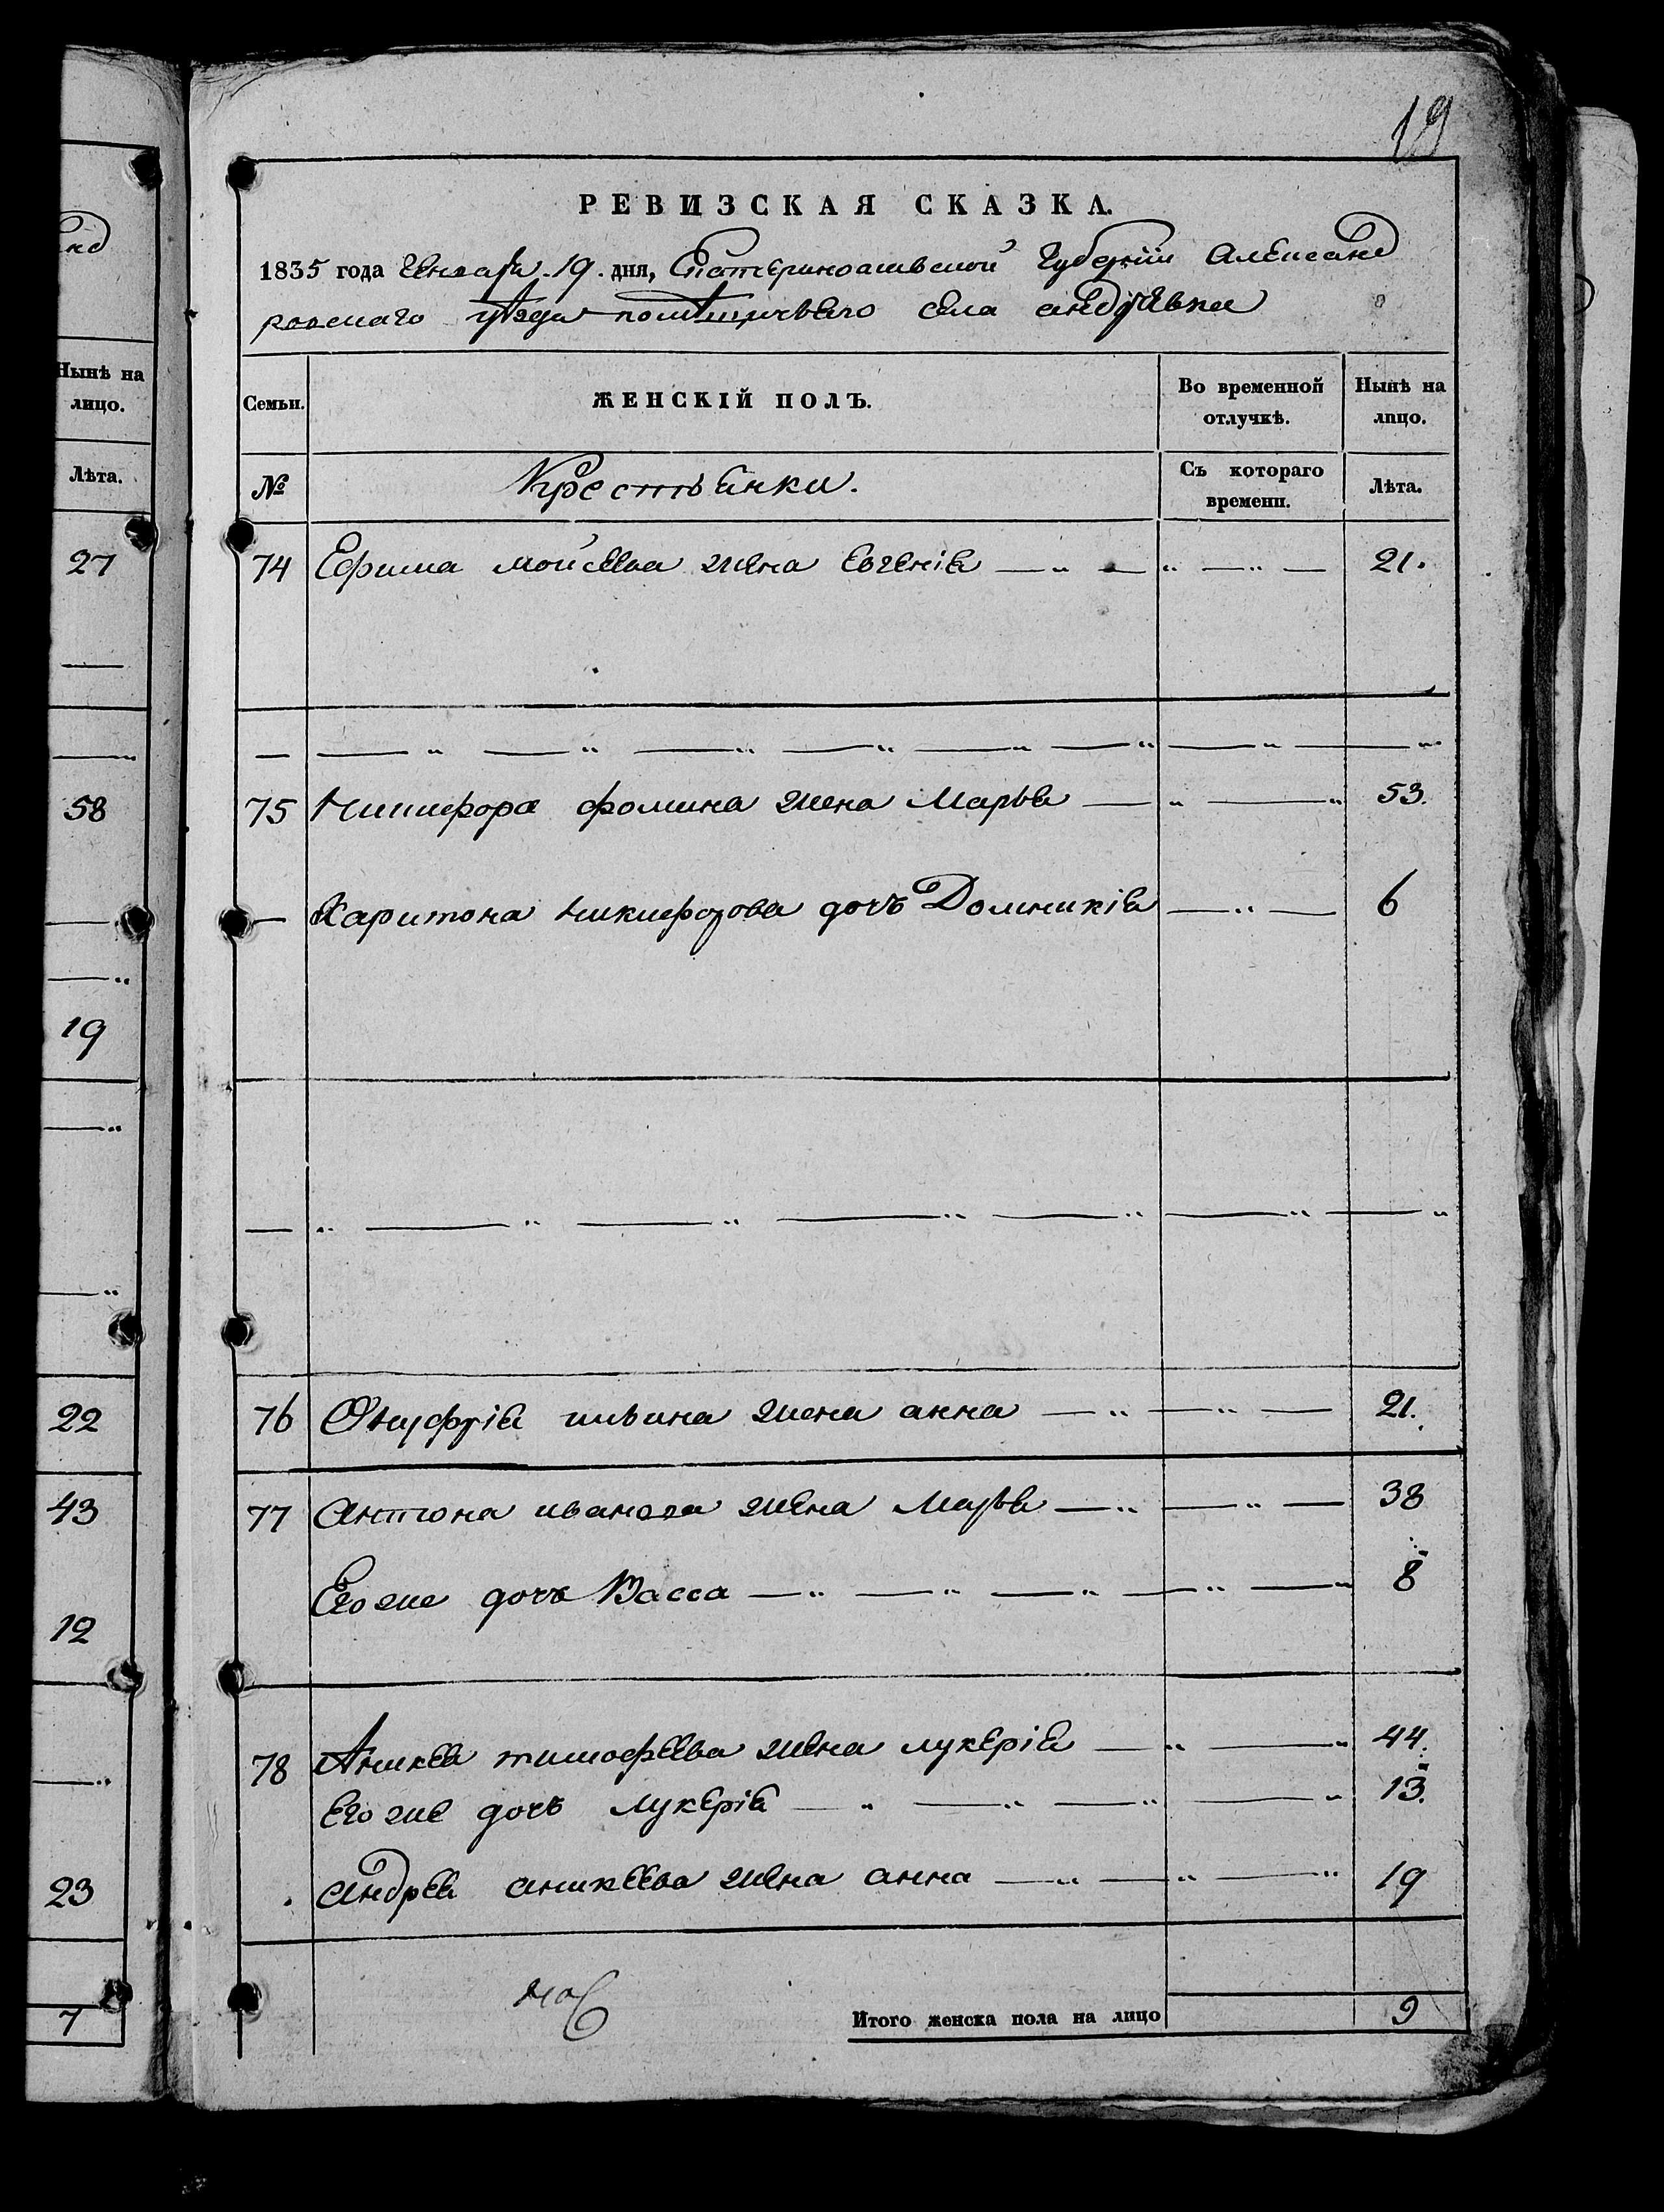 19
РЕВИЗСКАЯ СКАЗКА.
1835 года Генваря 19. дня, Екатериносшвской Губернии Александ
ровскаго уѣзда помѣщичьяго села андрѣевки
Семьи. ЖЕНСКІЙ ПОЛЪ. Во временной отлучкѣ. Нынѣ на лицо.
№ Крестьянки. Съ котораго времени. Лѣта.
74 Ефима мойсеева жена Евгенія — „ — „ — „ — 21.
— — „ — „ — „ — „ — „ — „ — „ — „
75 Никифора фомина жена Марья — „ — „ 53.
— Харитона никифорова дочь Домникія — „ — 6
— „ — „ — „ — „ — „ — „ — „
76 Онуфрія ильина жена анна — „ — „ — 21.
77 Антона иванова жена Марья — „ — „ — 38
Его же дочь Васса — „ — „ — „ — „ — „ 8
78 Аникея тимофеева жена лукерія — „ — „ 44.
Его же дочь лукерія — „ — „ — „ — „ 13.
Андрея аникеева жена анна — „ — „ — „ 19
Итого женска пола на лицо 9
Нынѣ на
лицо.
Лѣта.
27
58
19
22
43
12
23
7